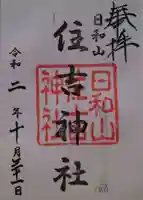 奉拝
日和山
住吉神社
日和山
住吉
神社
令和二年十月廿一日